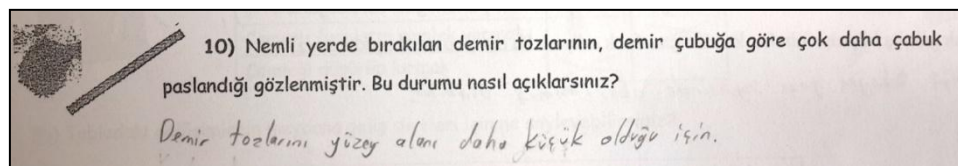 10) Nemli yerde bırakılan demir tozlarının, demir çubuğa göre çok daha çabuk
paslandığı gözlenmiştir. Bu durumu nasıl açıklarsınız?
Demir tozlarını yüzey alanı daha küçük olduğu için.